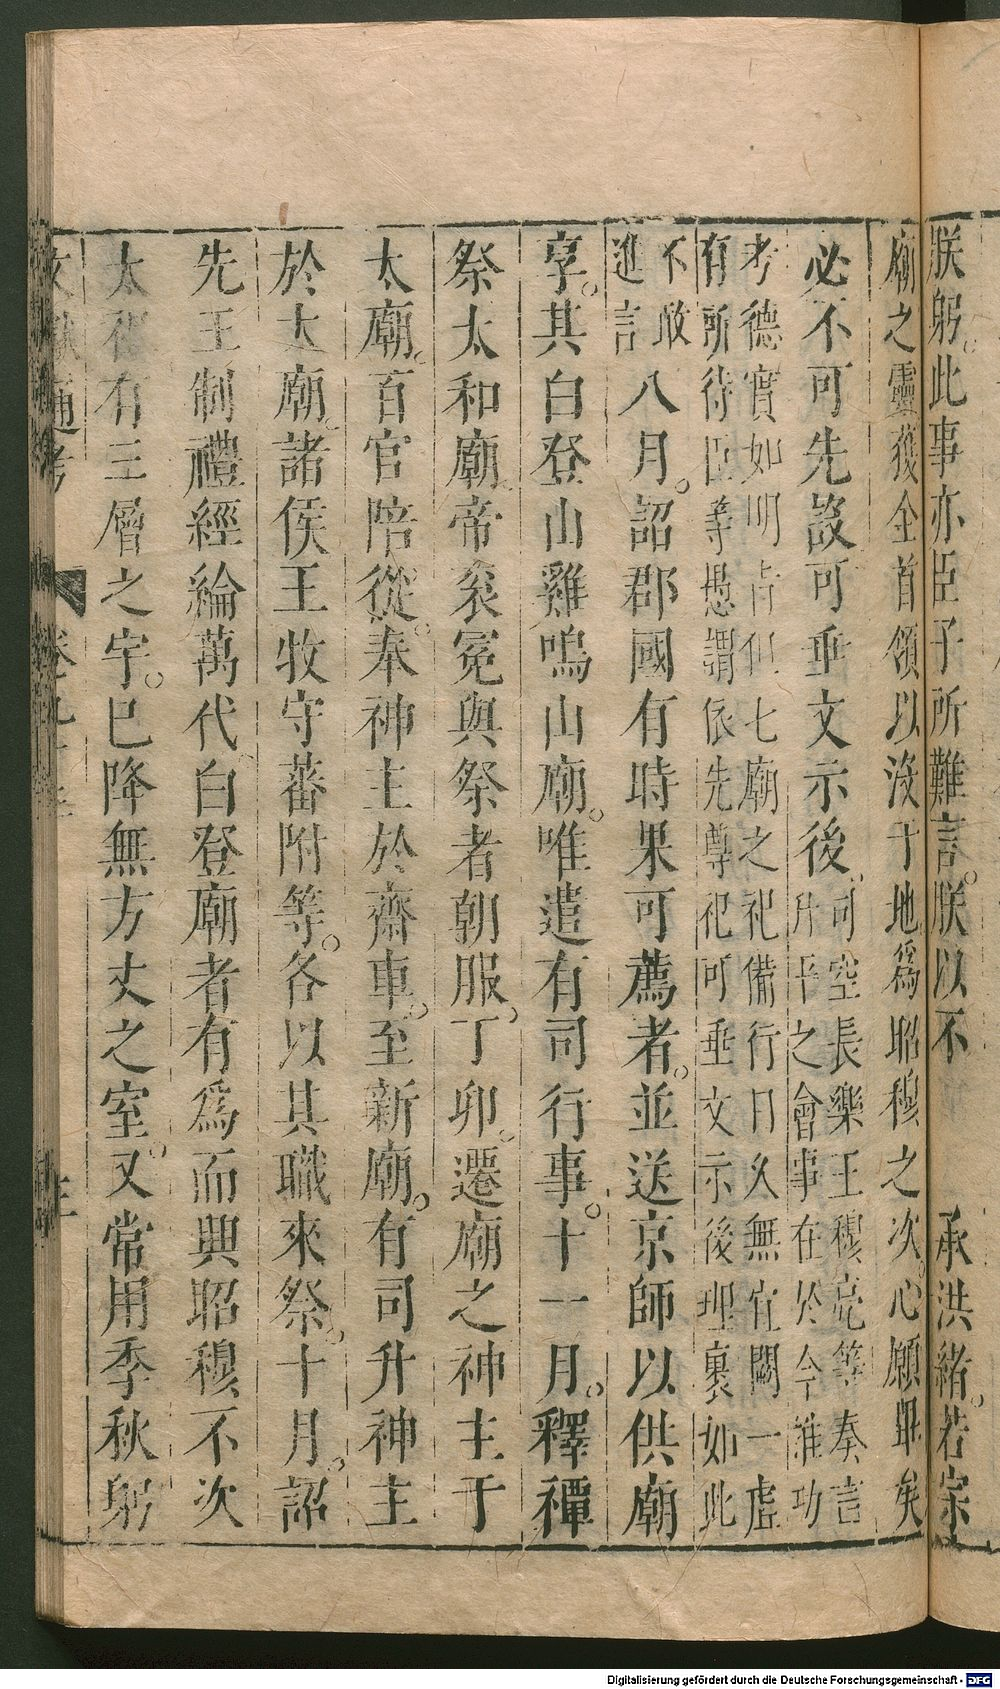 朕躬。此事亦臣子所難言。朕以不
承洪緒。若宗
廟之靈獲全首領以沒于地爲昭穆之次。心願畢矣
必不可先設可垂文示後。
司空長樂王穆亮等奏言
升平之會事在於今推功
考德實如明旨但七廟之祀備行日久無宜闕一虛
有所待臣等愚謂依先尊祀可垂文示後理衷如此
不敢
進言
八月。詔郡國有時果可薦者。並送京師以供廟
享。其白登山雞鳴山廟。唯遣有司行事。十一月。釋禫
祭太和廟。帝衮冕與祭者朝服。丁卯。遷廟之神主于
太廟。百官陪從。奉神主於齋車。至新廟。有司升神主
於太廟。諸侯王牧守蕃附等。各以其職來祭。十月。詔
先王制禮經綸萬代。白登廟者有爲而興昭穆不次
太祖有三層之宇。巳降無方丈之室。又常用季秋躬
文獻通考
卷九十